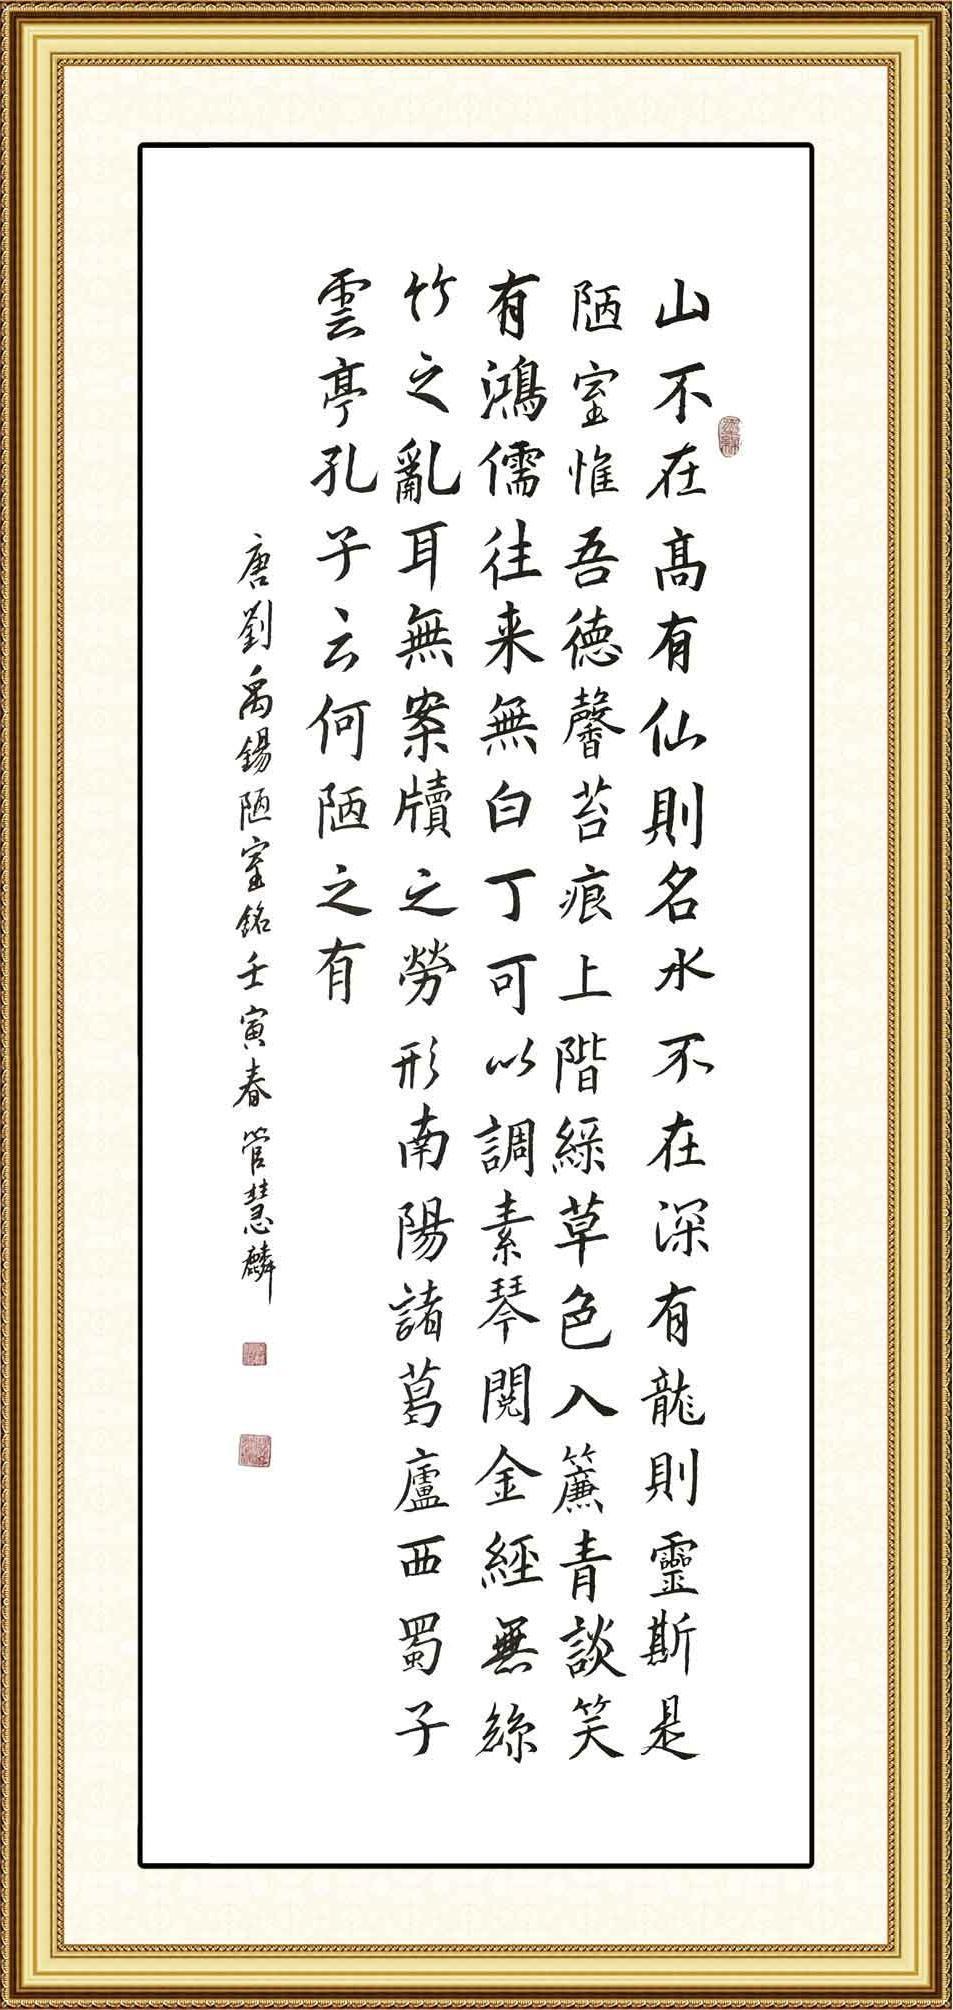 山不在高有仙則名水不在深有龍則靈斯是
陋室惟吾德馨苔痕上階綠草色入簾青談笑
有鴻儒往来無白丁可以調素琴閱金經無絲
竹之亂耳無案牘之勞形南陽諸葛廬西蜀子
雲亭孔子云何陋之有
唐劉禹錫陋室銘壬寅春管慧麟